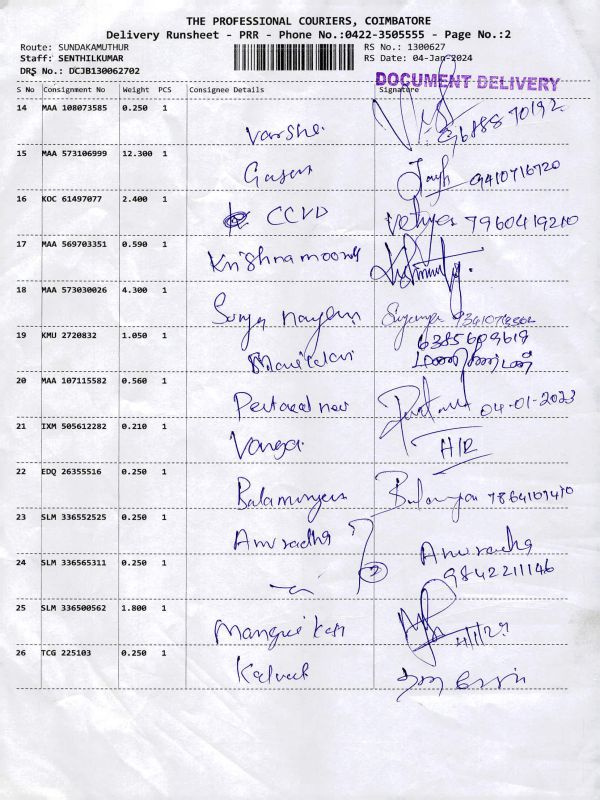 THE PROFESSIONAL COURIERS, COIMBATORE
Delivery Runsheet - PRR - Phone No.:0422-3505555 - Page No.:2
Route: SUNDAKAMUTHUR RS No.: 1300627
Staff: SENTHILKUMAR RS Date: 04-Jan-2024
DRS No.: DCJB130062702
DOCUMENT DELIVERY
S No Consignment No Weight PCS Consignee Details Signature
14 MAA 108073585 0.250 1
15 MAA 573106999 12.300 1
9410716720
16 KOC 61497077 2.400 1
CCVD 7960419210
17 MAA 569703351 0.590 1
Krishnamoorthy
18 MAA 573030026 4.300 1
19 KMU 2720832 1.050 1
6385609619
20 MAA 107115582 0.560 1
04-01-2023
21 IXM 505612282 0.210 1
H/R
22 EDQ 26355516 0.250 1
23 SLM 336552525 0.250 1
Anuradha Anuradha
9842211146
24 SLM 336565311 0.250 1
2
25 SLM 336500562 1.800 1
26 TCG 225103 0.250 1